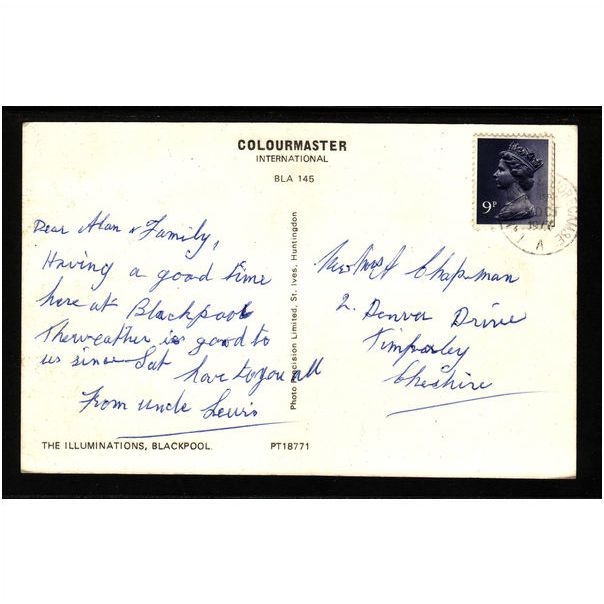 COLOURMASTER
INTERNATIONAL
BLA 145
9P
OCT
197
A
Dear Alan & Family,
Having a good time
here at Blackpool
The weather is good to
us since Sat
love to you all
From uncle Lewis
Photo Precision Limited, St. Ives, Huntingdon
Chapman
2. Denver Drive
Timperley
Cheshire
THE ILLUMINATIONS, BLACKPOOL.
PT18771